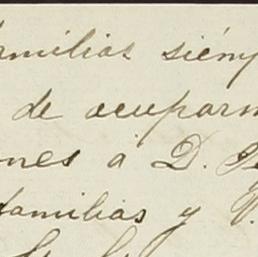 familias siémp
de ocuparm
ones á D.
familias y